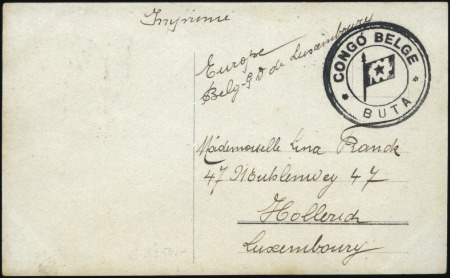 Imprimé
Europe
Belg-G D de Luxembourg
CONGO BELGE
BUTA
Mademoiselle Lina Franck
47 Mühlenweg 47
Hollerich
Luxembourg